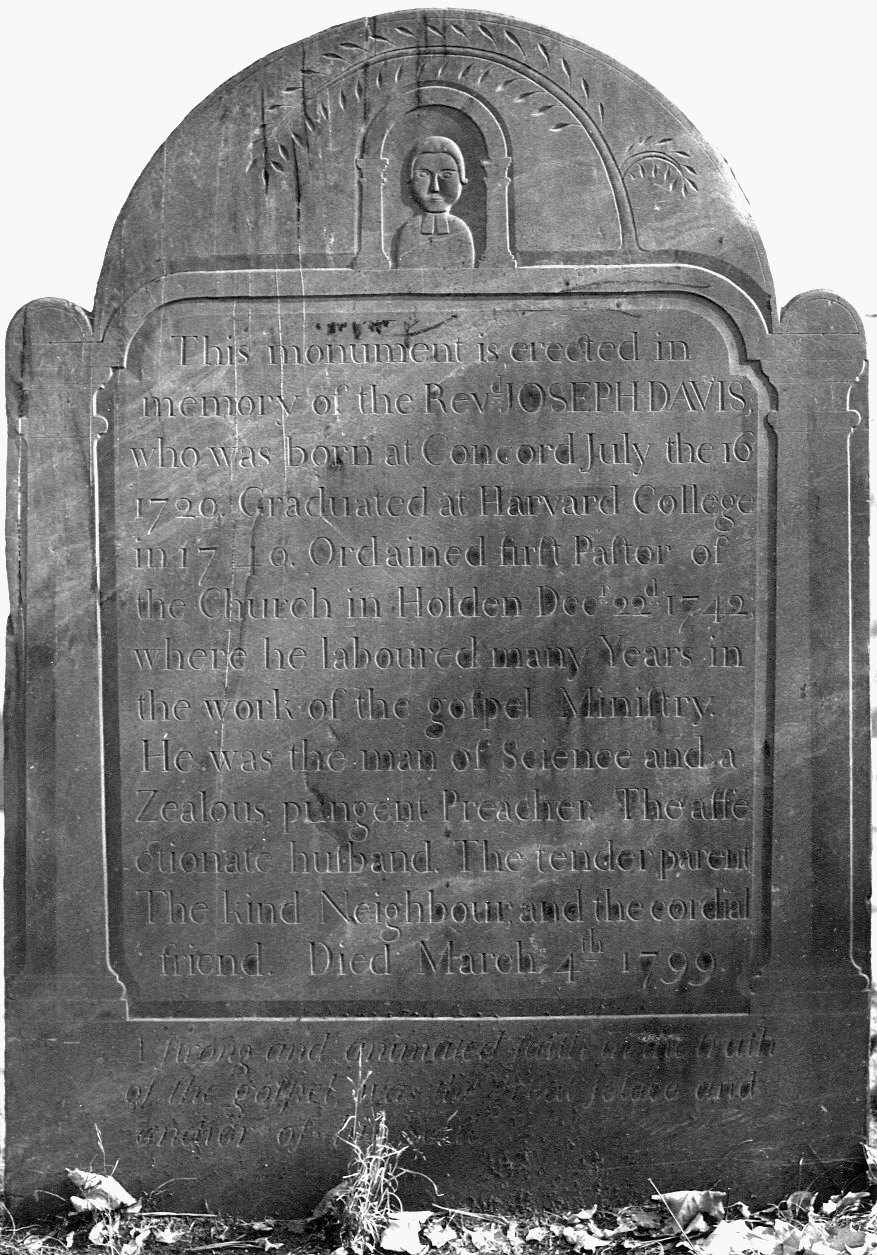 This monument is erected in
memory of the Revᵈ JOSEPH DAVIS,
who was born at Concord July the 16
1720, Graduated at Harvard College
in 1740. Ordained firſt Paſtor of
the Church in Holden Decʳ 22ᵈ 1742
where he laboured many Years in
the work of the goſpel Miniſtry.
He was the man of Science and a
Zealous, pungent Preacher. The affe
ctionate huſband, The tender parent
The kind Neighbour, and the cordial
friend. Died March 4ᵗʰ 1799.
A ſtrong and animated faith in the truth
of the goſpel was the great ſolace and
anchor of